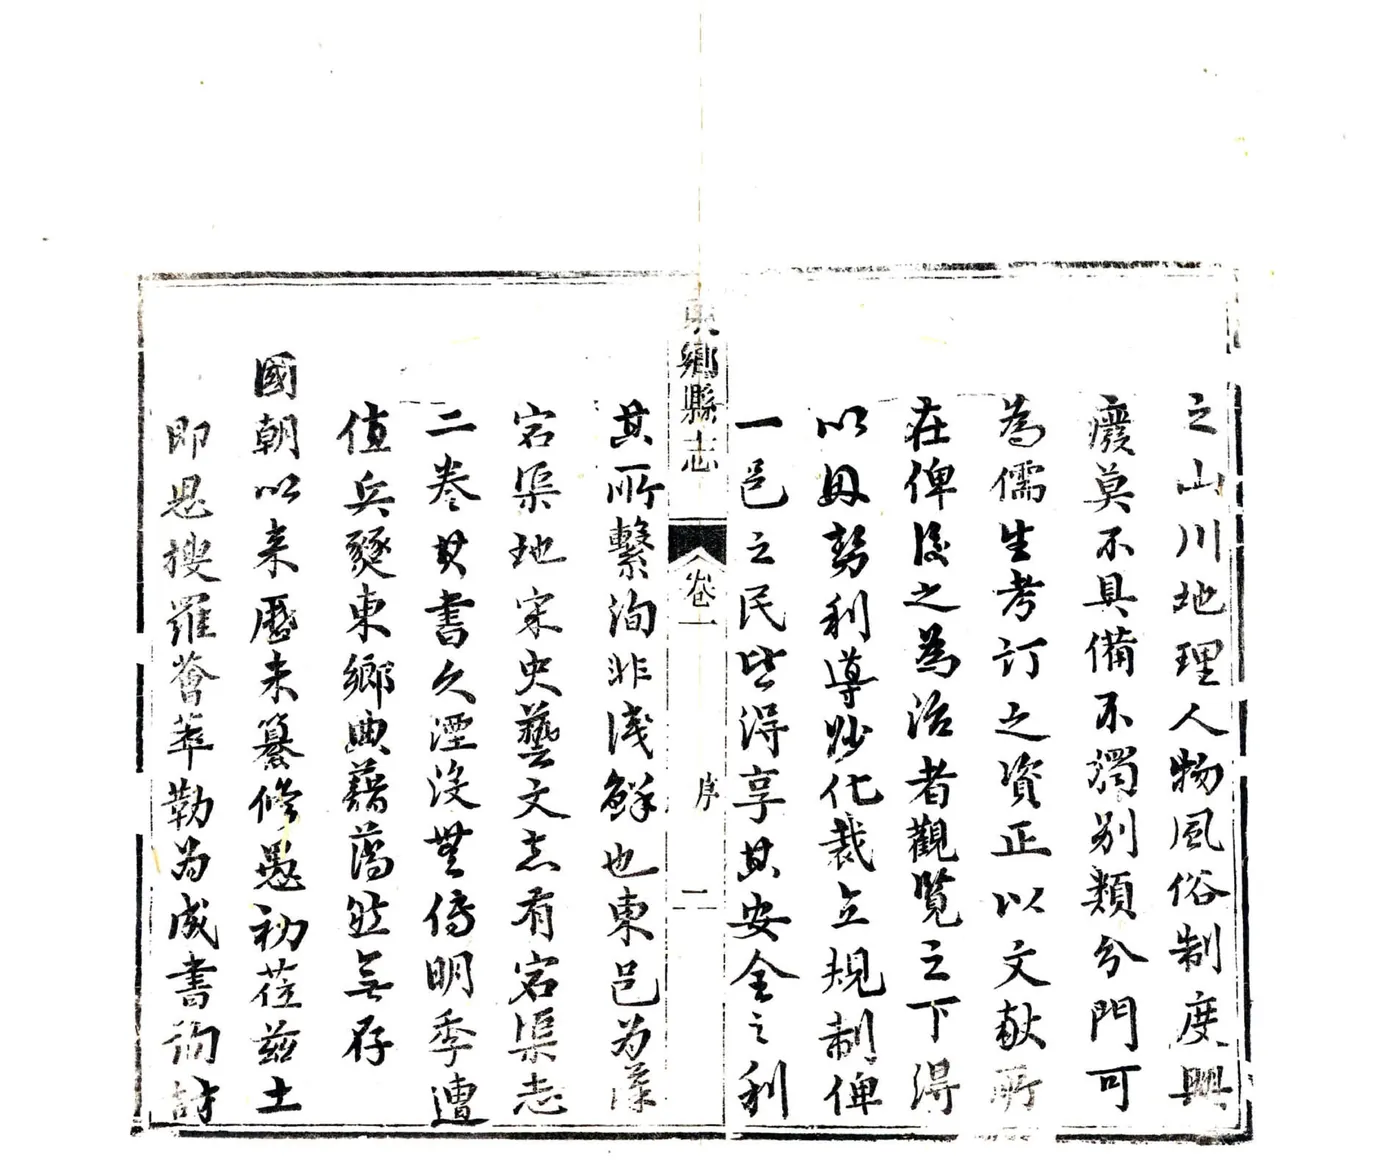 之山川地理人物風俗制度興
廢莫不具備不獨別類分門可
為儒生考訂之資正以文獻所
在俾後之為治者觀覽之下得
以因勢利導妙化裁立規制俾
一邑之民皆得享其安全之利
東鄉縣志
卷一
序
二
其所繫洵非淺鮮也東邑為漢
宕渠地宋史藝文志有宕渠志
二卷其書久湮沒無傳明季遭
值兵燹東鄉典籍蕩然無存
國朝以來歷未纂修愚初蒞茲土
即思搜羅薈萃勒為成書詢諸